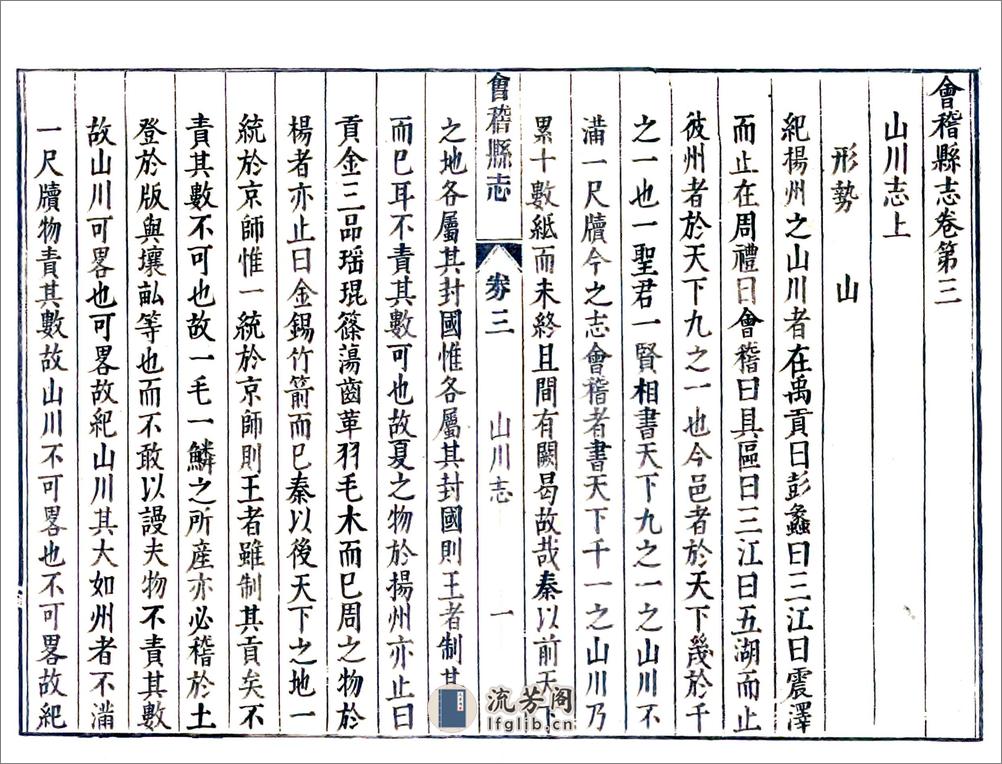 會稽縣志卷第三
山川志上
形勢 山
紀楊州之山川者在禹貢曰彭蠡曰三江曰震澤
而止在周禮曰會稽曰具區曰三江曰五湖而止
彼州者於天下九之一也今邑者於天下幾於千
之一也一聖君一賢相書天下九之一之山川不
滿一尺牘今之志會稽者書天下千一之山川乃
累十數紙而未終且間有闕曷故哉秦以前天下
會稽縣志
卷三
山川志
一
之地各屬其封國惟各屬其封國則王者制其
而已耳不責其數可也故夏之物於揚州亦止曰
貢金三品瑶琨篠蕩齒革羽毛木而已周之物於
楊者亦止曰金錫竹箭而已秦以後天下之地一
統於京師惟一統於京師則王者雖制其貢矣不
責其數不可也故一毛一鱗之所産亦必稽於土
登於版與壤畆等也而不敢以謾夫物不責其數
故山川可畧也可畧故紀山川其大如州者不滿
一尺牘物責其數故山川不可畧也不可畧故紀
流芳阁
lfglib.cn